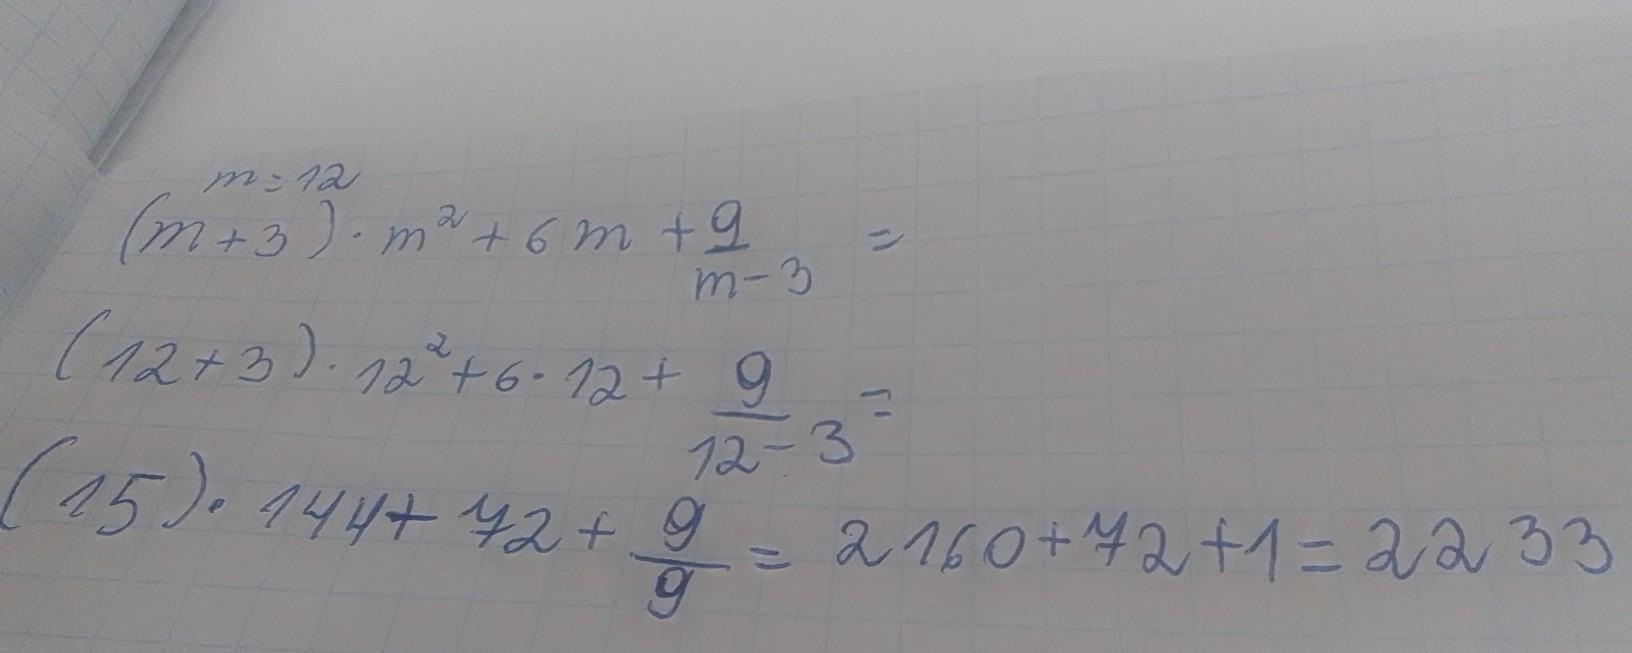 m = 12
(m + 3) · m² + 6m + 9/(m - 3) =
(12 + 3) · 12² + 6 · 12 + 9/(12 - 3) =
(15) · 144 + 72 + 9/9 = 2160 + 72 + 1 = 2233